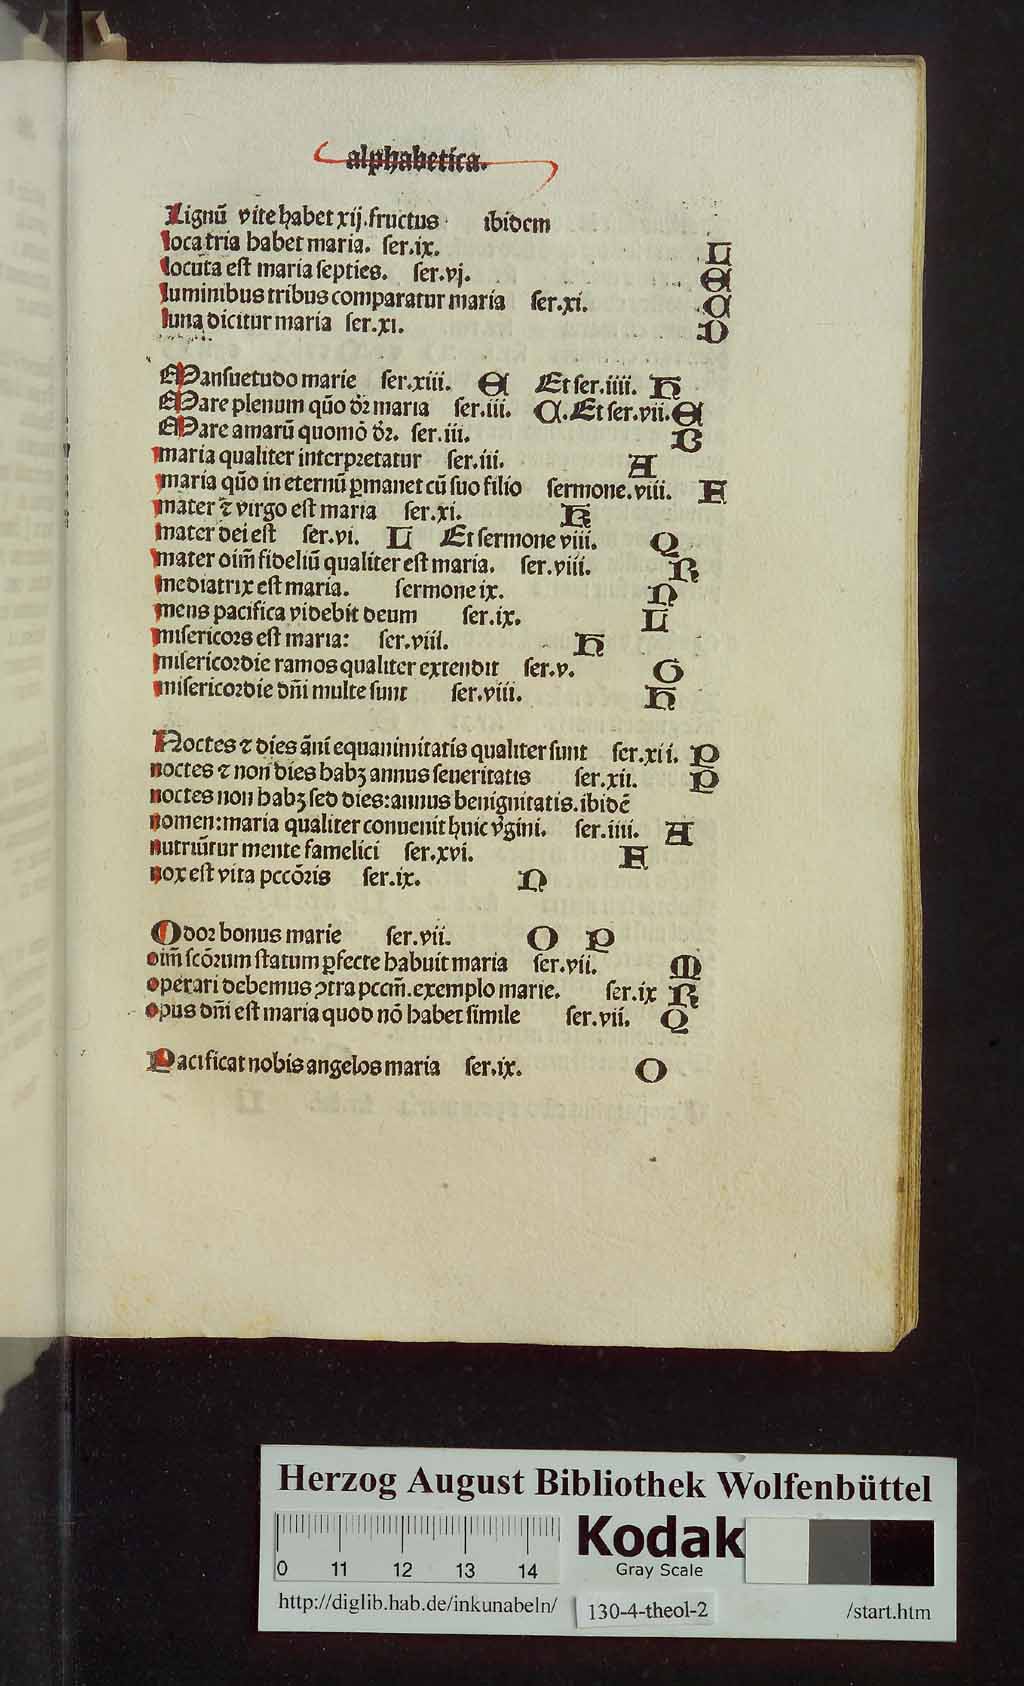 alphabetica.
Lignū vite habet xij. fructus ibidem
loca tria habet maria. ser.ix. L
locuta est maria septies. ser.vj. E
luminibus tribus comparatur maria ser.xi. C
luna dicitur maria ser.xi. D
Mansuetudo marie ser.xiii. E Et ser.iiii. H
Mare plenum quō dr̄ maria ser.iii. C. Et ser.vii. E
Mare amarū quomō dr̄. ser.iii. B
maria qualiter interpretatur ser.iii. A
maria quō in eternū ꝑmanet cū suo filio sermone.viii. F
mater ⁊ virgo est maria ser.xi. K
mater dei est ser.vi. L Et sermone viii. Q
mater oim̄ fideliū qualiter est maria. ser.viii. R
mediatrix est maria. sermone ix. N
mens pacifica videbit deum ser.ix. L
misericors est maria: ser.viii. H
misericordie ramos qualiter extendit ser.v. G
misericordie dn̄i multe sunt ser.viii. H
Noctes ⁊ dies āni equanimitatis qualiter sunt ser.xii. P
noctes ⁊ non dies habꝫ annus seueritatis ser.xii. P
noctes non habꝫ sed dies: annus benignitatis. ibidē
nomen: maria qualiter conuenit huic v̄gini. ser.iiii. A
nutriūtur mente famelici ser.xvi. F
nox est vita pccōris ser.ix. N
Odor bonus marie ser.vii. O P
oim̄ scōrum statum ꝑfecte habuit maria ser.vii. M
operari debemus ↄtra pccm̄. exemplo marie. ser.ix R
opus dn̄i est maria quod nō habet simile ser.vii. Q
Pacificat nobis angelos maria ser.ix. O
Herzog August Bibliothek Wolfenbüttel
0 11 12 13 14
Kodak
Gray Scale
http://diglib.hab.de/inkunabeln/ 130-4-theol-2 /start.htm